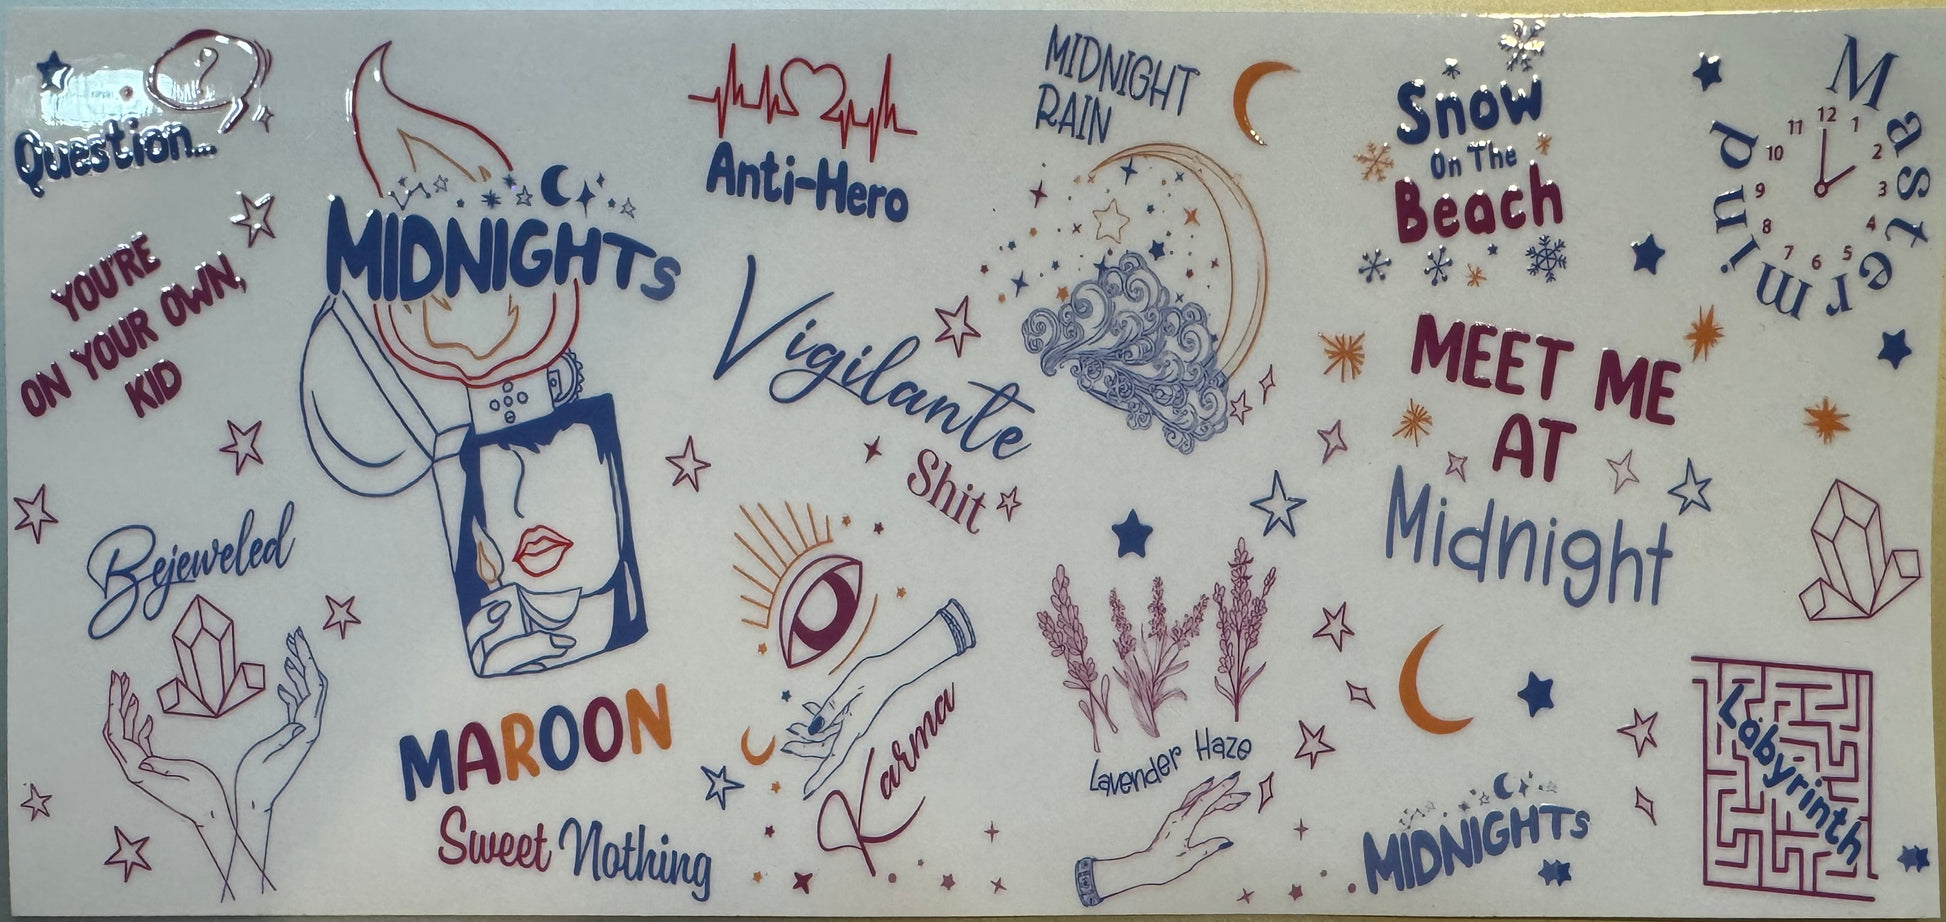 ?
Question...
YOU'RE
ON YOUR OWN,
KID
Bejeweled
MIDNIGHTS
MAROON
Sweet Nothing
Anti-Hero
Vigilante
Shit
Karma
MIDNIGHT
RAIN
Lavender Haze
Snow
On The
Beach
MEET ME
AT
Midnight
MIDNIGHTS
Mastermind
12
1
2
3
4
5
6
7
8
9
10
11
Labyrinth